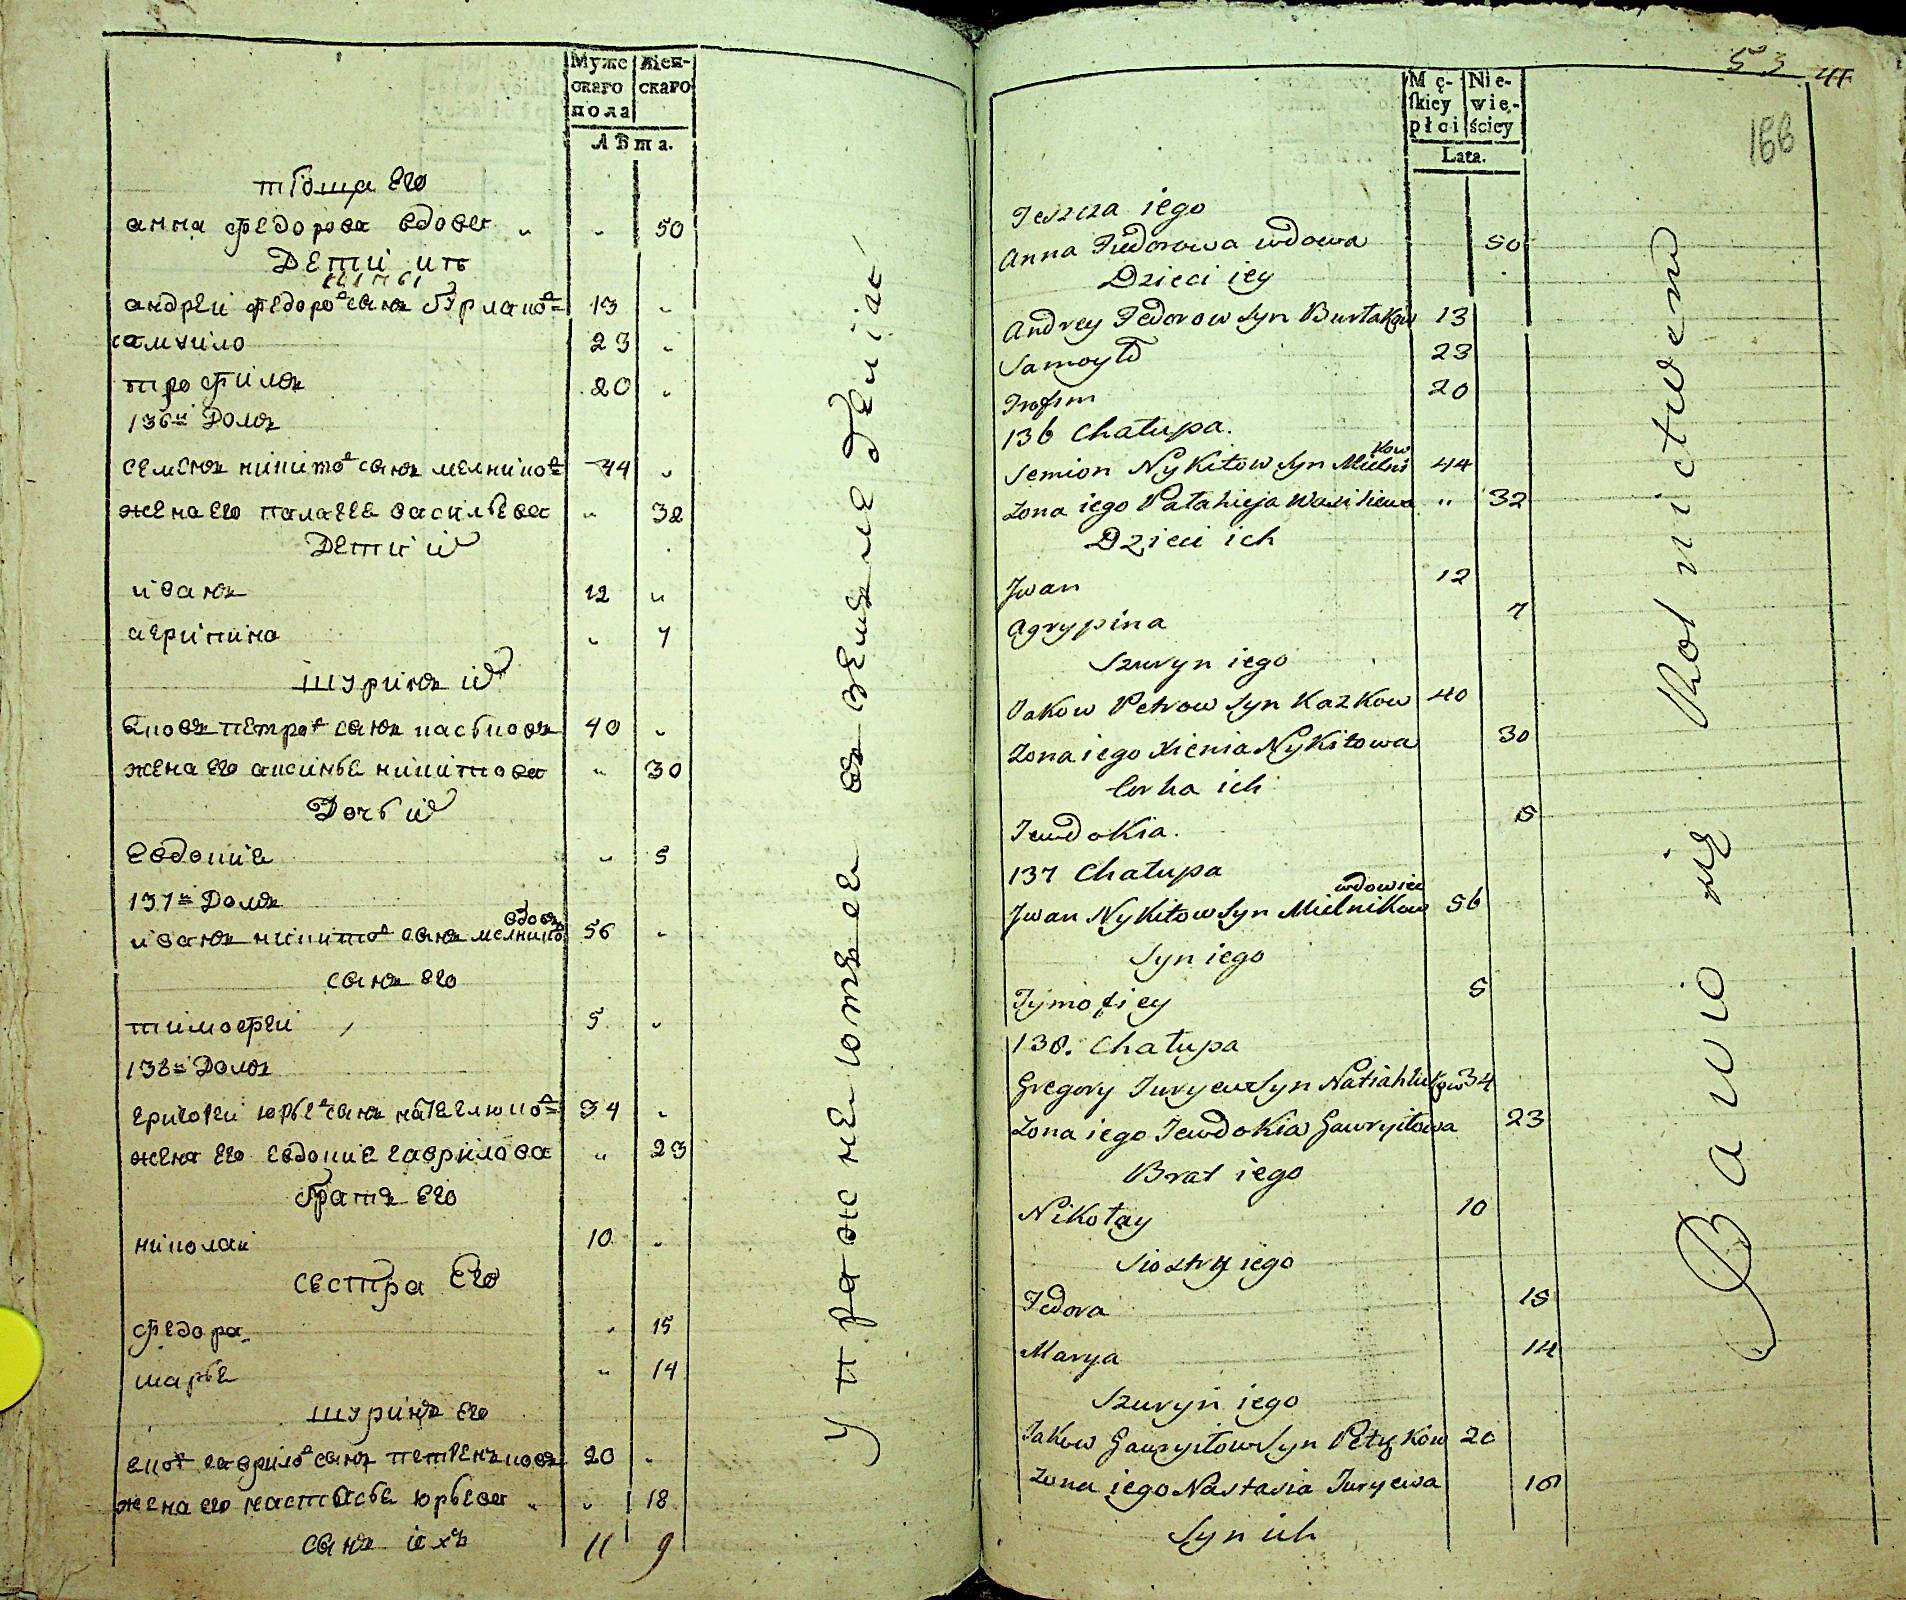 Муже
скаго
пола
Жен-
скаго
Лѣта.
тѣоща его
анна федорова вдова „ „ 50
Дети ить
андреи федоровъ сынъ бурлаковъ 13 „
самуило 23 „
трофимъ 20 „
136й Домъ
семенъ никитовъ сынъ мелниковъ 44 „
жена его палагея василѣва „ 32
Дети их
иванъ 12 „
агрипина „ 7
шуринъ их
яковъ петровъ сынъ каськовъ 40 „
жена его аксинья никитова „ 30
Дочь их
евдокия „ 5
137й Домъ
вдовъ
иванъ никитовъ сынъ мелниковъ 56 „
сынъ его
тимофеи 5 „
138й Домъ
григореи юрьевъ сынъ натеглюковъ 34 „
жена его евдокия гаврилова „ 23
братъ его
николаи 10 „
сестра его
федора „ 15
марья „ 14
шуринъ его
яковъ гавриловъ сынъ петренковъ 20 „
жена его настасья юрьева „ „ 18
сынъ ихъ 11 9
упражняютъся въ земледелие
53 41
166
Mę-
skiey
płci
Nie-
wie-
ściey
Lata.
Teszcza iego
Anna Fiedorowa wdowa 50
Dzieci iey
Andrey Fedorow syn Burłakow 13
Samoyło 23
Trofim 20
136 Chałupa.
kow
Semion Nykitow syn Mielni 44
Zona iego Pałahieja Wasiliewa „ 32
Dzieci ich
Jwan 12
Agrypina 7
Szuryn iego
Jakow Petrow syn Kazkow 40
Zona iego Xienia Nykitowa 30
Corka ich
Jewdokia. 5
137 Chałupa
wdowiec
Jwan Nykitow syn Mielnikow 56
Syn iego
Tymofiey 5
138. Chałupa
Gregory Juryew syn Natiahlukow 34
Zona iego Jewdokia Gawryłowa 23
Brat iego
Nikołay 10
Siostry iego
Fedora 15
Marya 14
Szuryn iego
Jakow Gawryłow syn Petrykow 20
Zona iego Nastasia Juryewa 18
Syn ich
Bawio się Rolnictwem